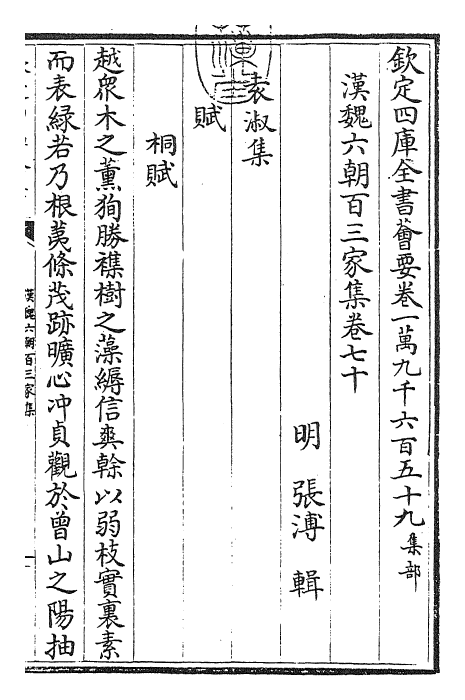 欽定四庫全書薈要卷一萬九千六百五十九集部
漢魏六朝百三家集卷七十
明 張溥 輯
袁淑集
賦
桐賦
越衆木之薰狥勝襍樹之藻縟信爽幹以弱枝實裏素
而表緑若乃根荑條茂跡曠心冲貞觀於曾山之陽抽
漢魏六朝百三家集
一